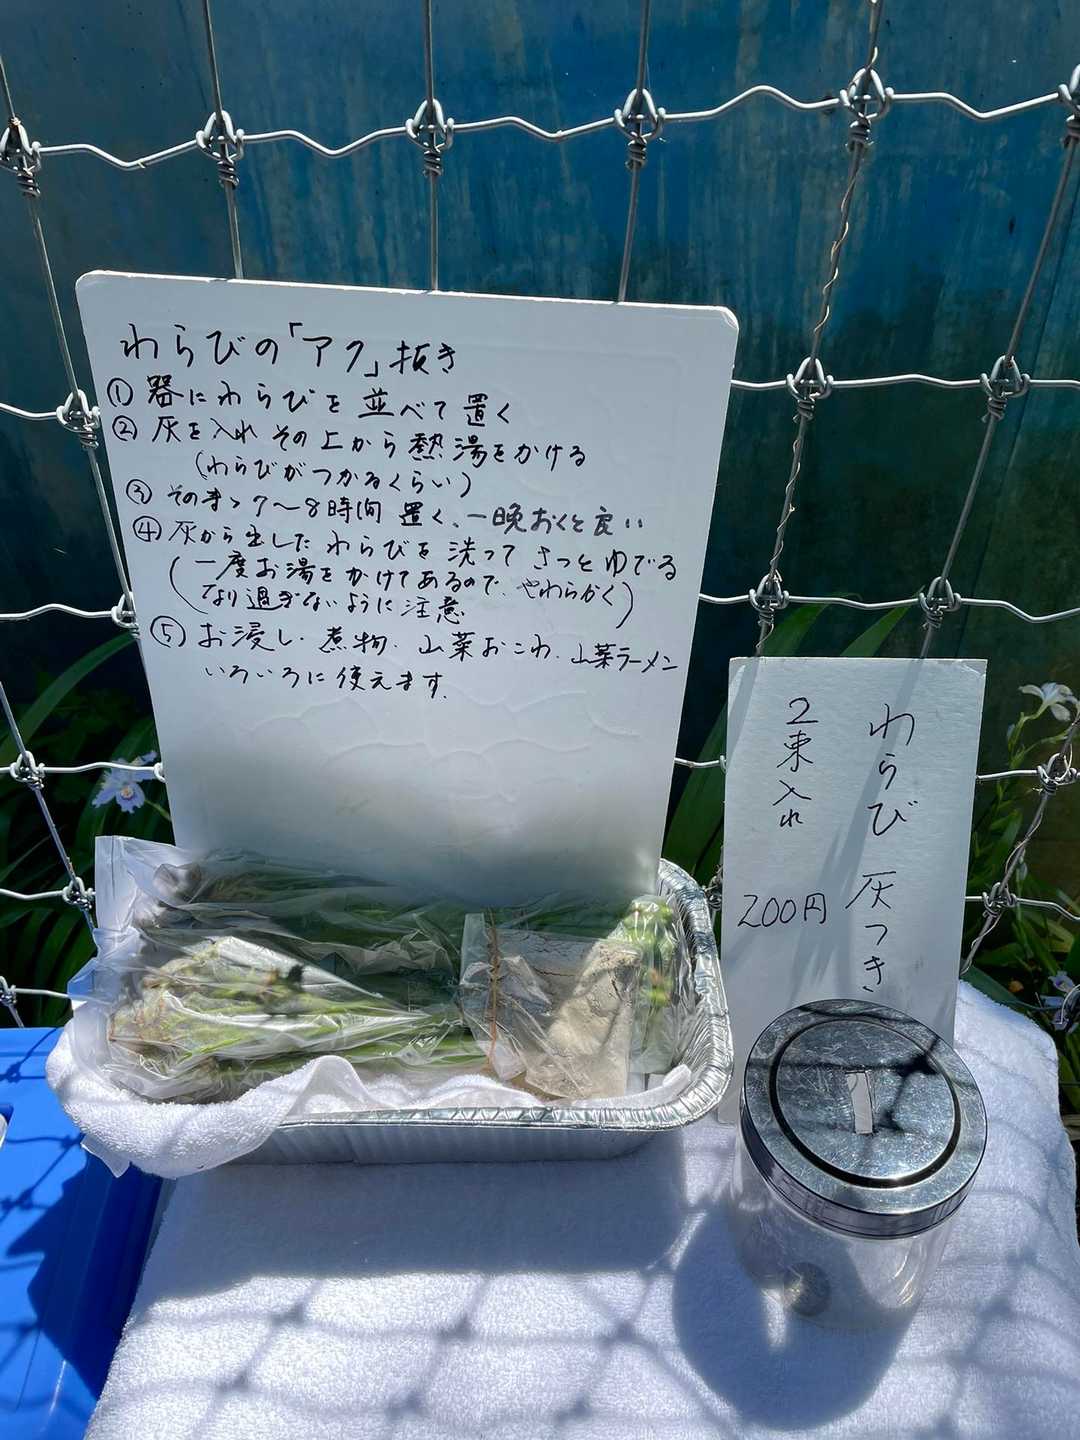 わらびの「アク」抜き
① 器にわらびを並べて置く
② 灰を入れその上から熱湯をかける
(わらびがつかるくらい)
③ そのまゝ7〜8時間 置く、一晩おくと良い
④ 灰から出したわらびを洗ってさっとゆでる
(一度お湯をかけてあるので、やわらかく
なり過ぎないように注意)
⑤ お浸し、煮物、山菜おこわ、山菜ラーメン
いろいろに使えます.
わらび 灰つき
2束入れ
200円